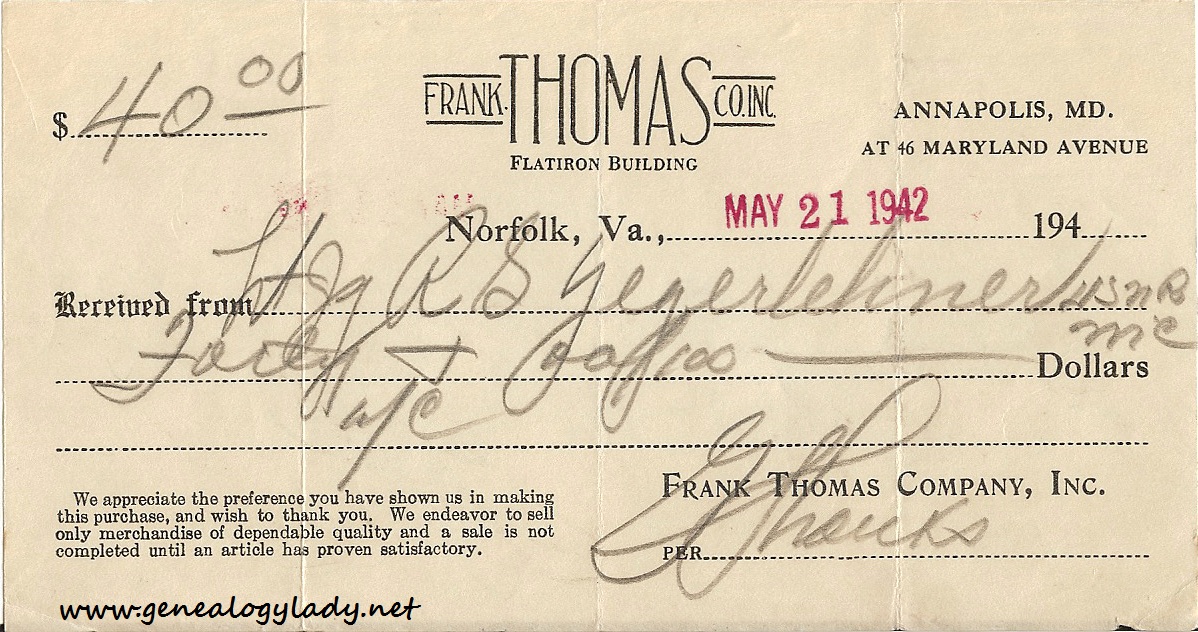 $ 40 00
FRANK THOMAS CO. INC.
FLATIRON BUILDING
ANNAPOLIS, MD.
AT 46 MARYLAND AVENUE
Norfolk, Va., MAY 21 1942 194
Received from Lt Jg R S Yegerlehner USNR
MC
Forty + 00/100 Dollars
a/c
We appreciate the preference you have shown us in making
this purchase, and wish to thank you. We endeavor to sell
only merchandise of dependable quality and a sale is not
completed until an article has proven satisfactory.
FRANK THOMAS COMPANY, INC.
PER Thanks
www.genealogylady.net